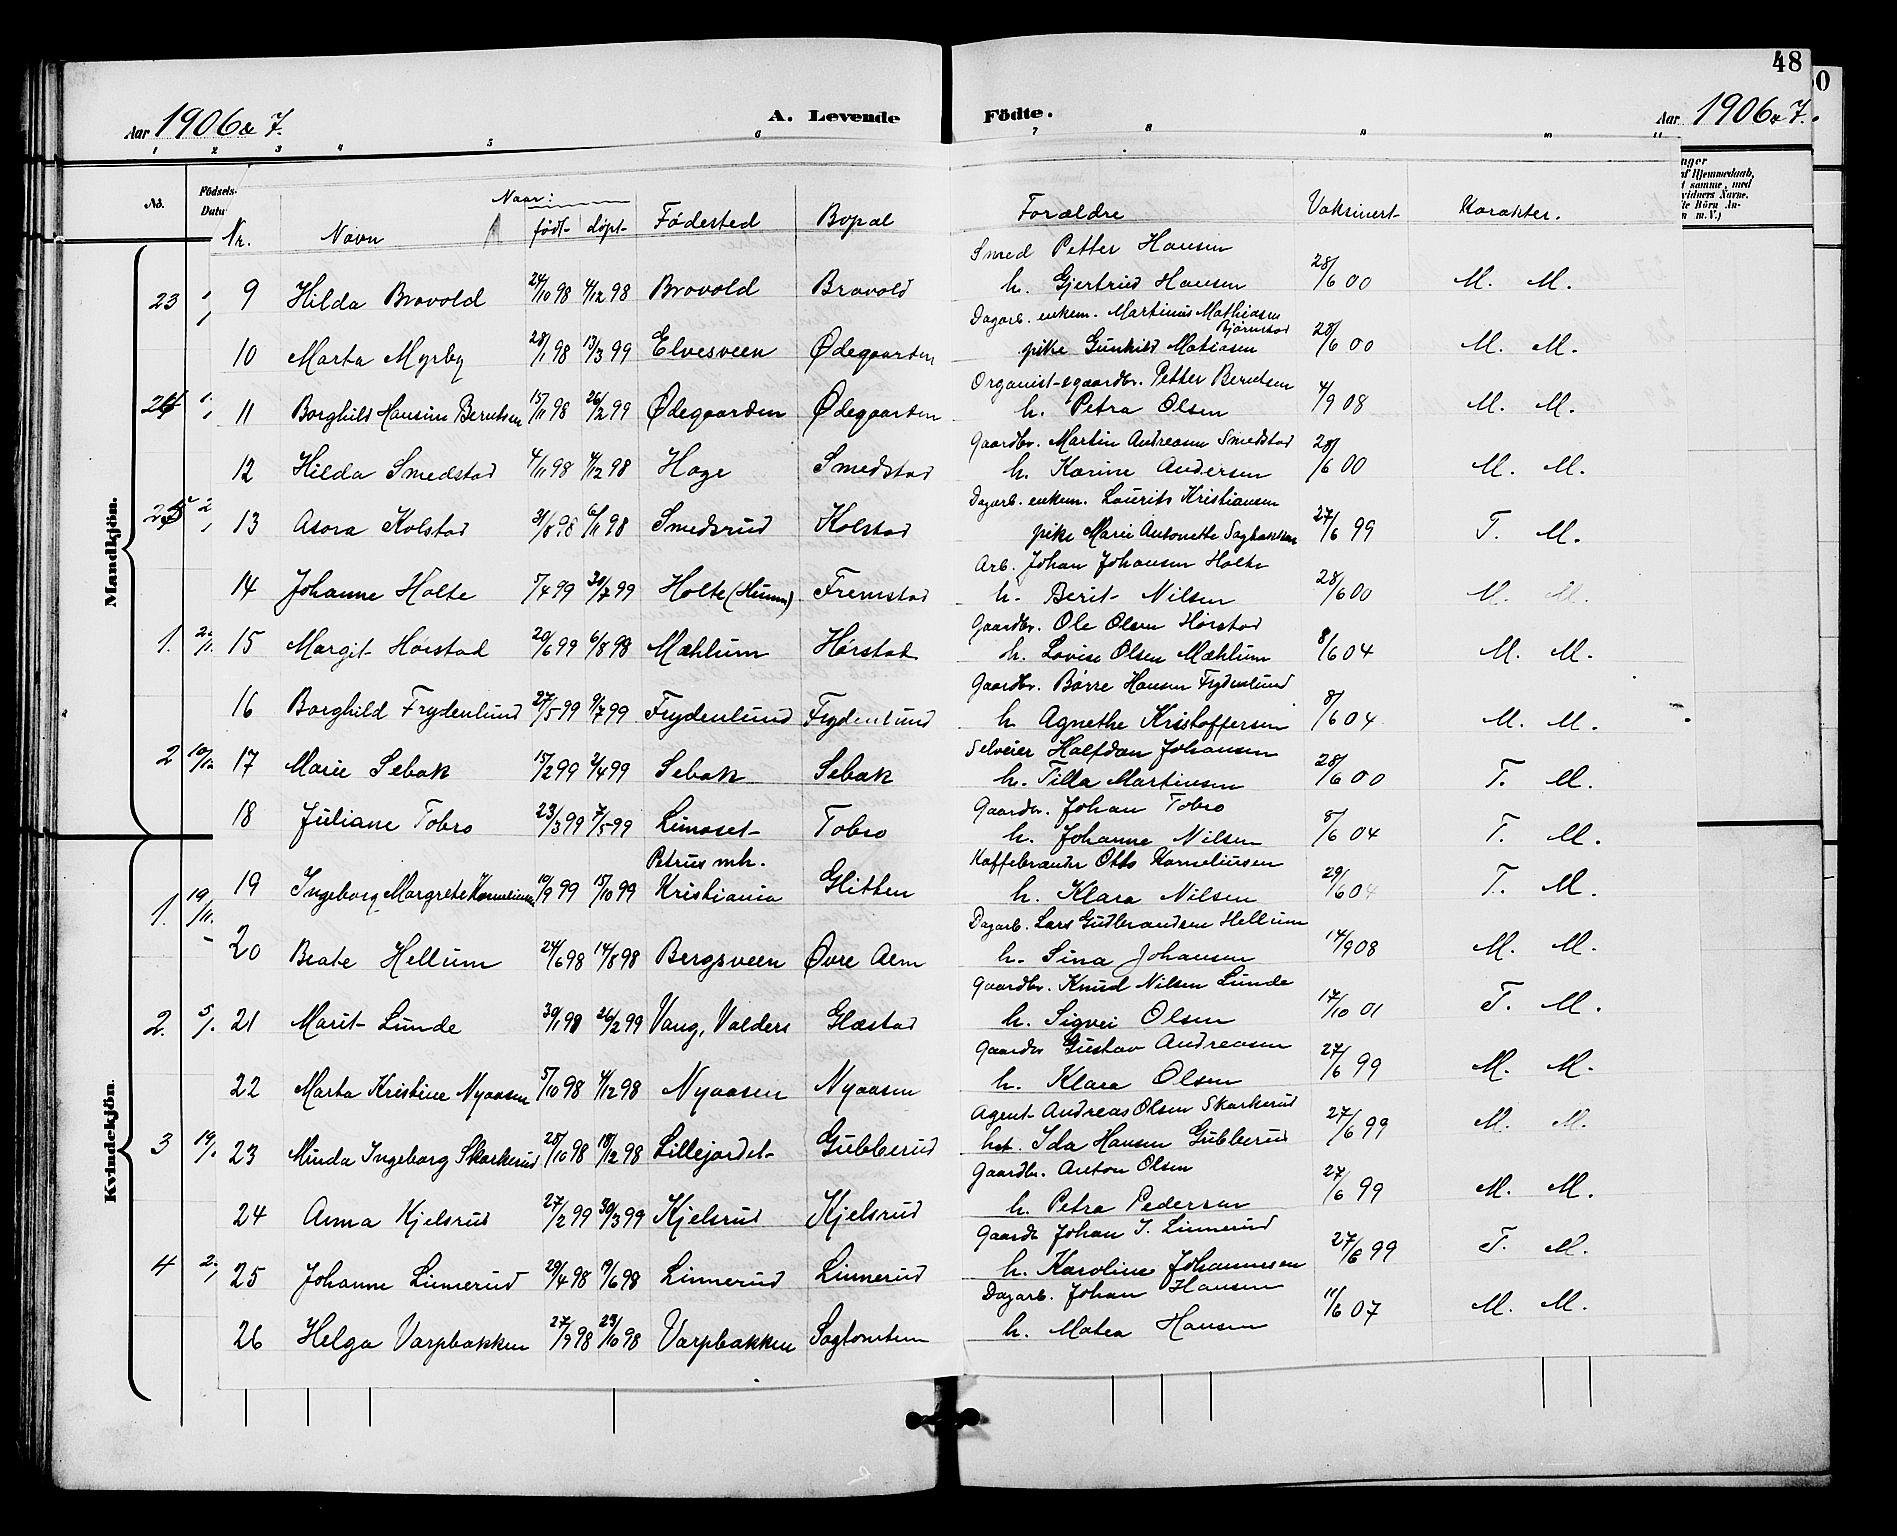 48
Aar 1906 & 7. A. Levende Födte. Aar 1906 & 7.
1 2 3 4 5 6 7 8 9
No. Födsels-Datu
Mandkjön.
Kvindekjön.
Nr. Navn Naar: født- døpt- Fødested Bopæl Forældre Vaksinert- Karakter.
Smed Petter Hansen
9 Hilda Brovold 24/10 98 4/12 98 Brovold Brovold h. Gjertrud Hansen 28/6 00 M. M.
Dagarb. enkem. Martinus Mathiasen Bjørnstad
10 Marta Myrby 28/1 98 13/3 99 Elvesveen Ødegaarden pike Gunhild Matiasen 28/6 00 M. M.
Organist- & gaardbr. Petter Berntsen
11 Borghild Hansine Berntsen 15/11 98 26/2 99 Ødegaarden Ødegaarden h. Petra Olsen 4/9 08 M. M.
Gaardbr. Martin Andreasen Smedstad
12 Hilda Smedstad 4/11 98 4/12 98 Hage Smedstad h. Karine Andersen 28/6 00 M. M.
Dagarb. enkem. Laurits Kristiansen
13 Asora Kolstad 31/8 98 6/11 98 Smedsrud Kolstad pike Marie Antonette Sagbakken 27/6 99 T. M.
Arb. Johan Johansen Holte
14 Johanne Holte 5/4 99 30/7 99 Holte (Hunn) Fremstad h. Berit Nilsen 28/6 00 M. M.
Gaardbr. Ole Olsen Hørstad
15 Margit Hørstad 20/6 99 6/8 98 Mæhlum Hørstad h. Lovise Olsen Mæhlum 8/6 04 M. M.
Gaardbr. Børre Hansen Frydenlund
16 Borghild Frydenlund 27/5 99 9/7 99 Frydenlund Frydenlund h. Agnethe Kristoffersen 8/6 04 M. M.
Selveier Halfdan Johansen
17 Marie Sebak 15/2 99 2/4 99 Sebak Sebak h. Tilla Martinsen 28/6 00 T. M.
Gaardbr. Johan Tobro
18 Juliane Tobro 23/3 99 7/5 99 Limoset- Tobro h. Johanne Nilsen 8/6 04 T. M.
Petrus mh. Kaffebrænder Otto Korneliusen
19 Ingeborg Margrete Korneliusen 10/9 99 15/10 99 Kristiania Glitten h. Klara Nilsen 29/6 04 T. M.
Dagarb. Lars Gudbrandsen Hellum
20 Beate Hellum 24/6 98 14/8 98 Bergsveen Øvre Alm h. Sina Johansen 14/9 08 M. M.
Gaardbr. Knud Nilsen Lunde
21 Marit Lunde 30/1 98 26/2 99 Vang, Valders Glæstad h. Sigvei Olsen 17/10 01 T. M.
Gaardbr Gustav Andreasen
22 Marta Kristine Nyaasen 5/10 98 4/12 98 Nyaasen Nyaasen h. Klara Olsen 27/6 99 M. M.
Agent- Andreas Olsen Skarkerud
23 Minda Ingeborg Skarkerud 28/10 98 18/12 98 Lillejordet- Gubberud hst. Ida Hansen Gubberud 27/6 99 M. M.
Gaardbr. Anton Olsen
24 Anna Kjelsrud 27/2 99 30/3 99 Kjelsrud Kjelsrud h. Petra Pedersen 27/6 99 M. M.
Gaardb. Johan J. Linnerud
25 Johanne Linnerud 29/4 98 19/6 98 Linnerud Linnerud h. Karoline Johannesen 27/6 99 T. M.
Dagarb. Johan Hansen
26 Helga Varpbakken 27/9 98 23/10 98 Varpbakken Sagtomten h. Matea Hansen 11/6 07 M. M.
23
1.
2
1. 19/11.
2. 5/.
3 19/.
4